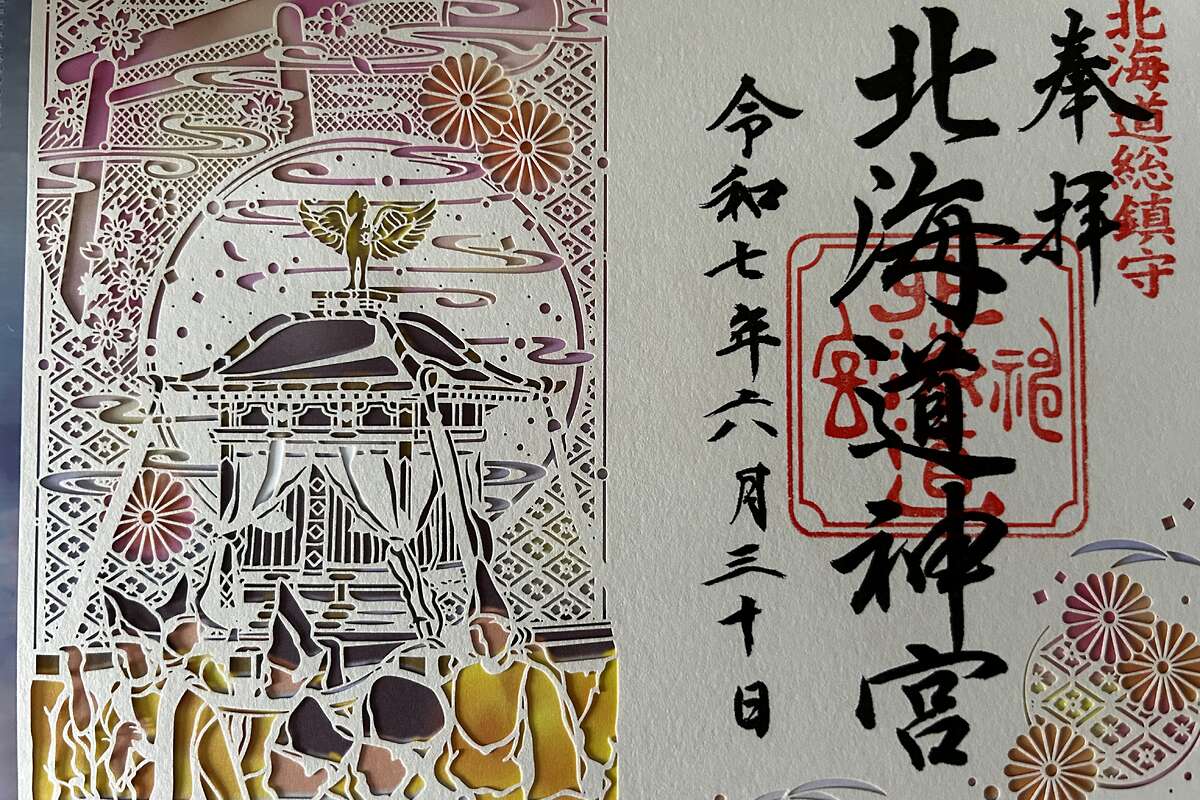 北海道総鎮守
奉拝
北海道神宮
北海道神宮
令和七年六月三十日